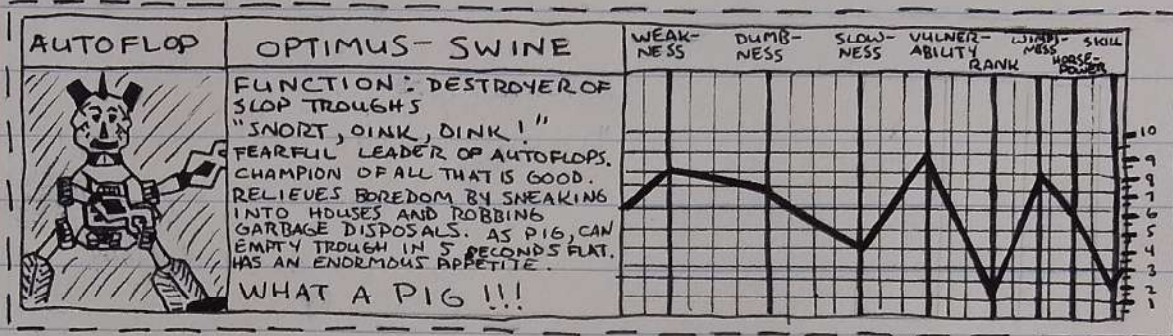 AUTOFLOP
OPTIMUS-SWINE
FUNCTION: DESTROYER OF
SLOP TROUGHS
"SNORT, OINK, OINK!"
FEARFUL LEADER OF AUTOFLOPS.
CHAMPION OF ALL THAT IS GOOD.
RELIEVES BOREDOM BY SNEAKING
INTO HOUSES AND ROBBING
GARBAGE DISPOSALS. AS PIG, CAN
EMPTY TROUGH IN 5 SECONDS FLAT.
HAS AN ENORMOUS APPETITE.
WHAT A PIG !!!
WEAK-
NESS
DUMB-
NESS
SLOW-
NESS
VULNER-
ABILITY
RANK
WIMPI-
NESS
HORSE-
POWER
SKILL
10
9
8
7
6
5
4
3
2
1